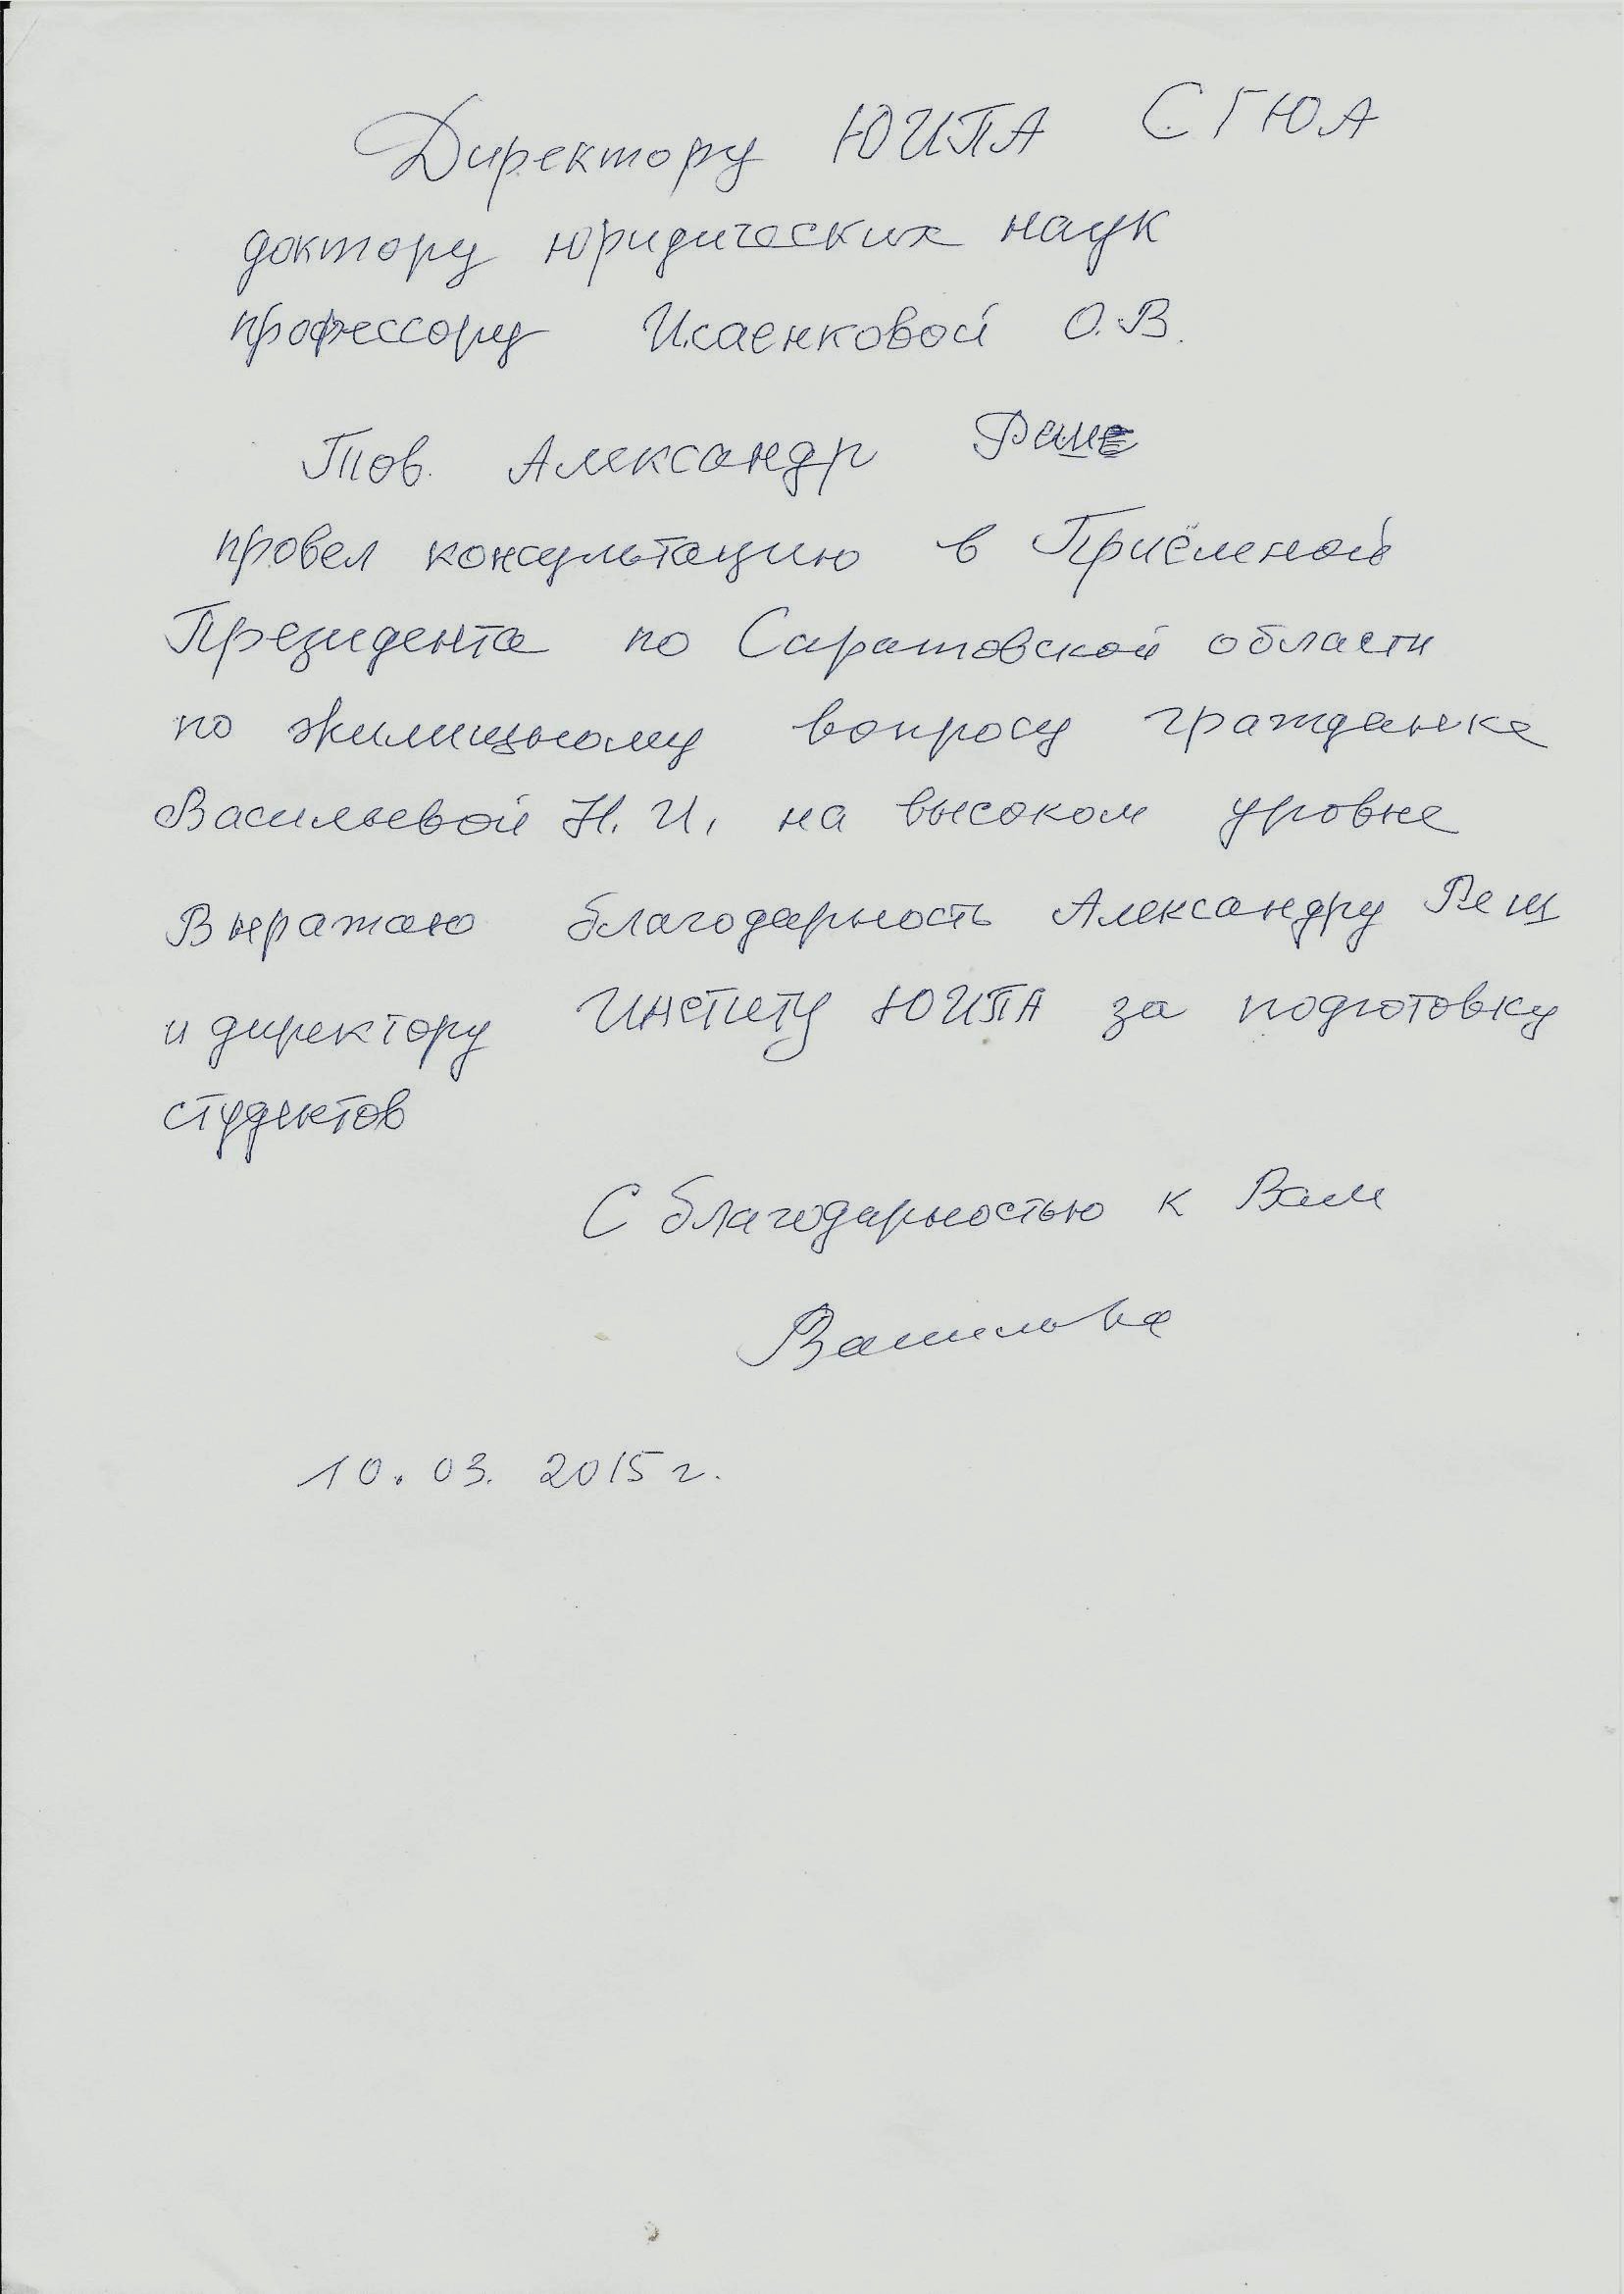 Директору ЮИПА СГЮА
доктору юридических наук
профессору Исаенковой О.В.
Тов. Александр
провел консультацию в Приёмной
Президента по Саратовской области
по жилищному вопросу гражданке
Васильевой Н.И, на высоком уровне
Выражаю благодарность Александру
и директору Институту ЮИПА за подготовку
студентов
С благодарностью к Вам
10.03.2015 г.